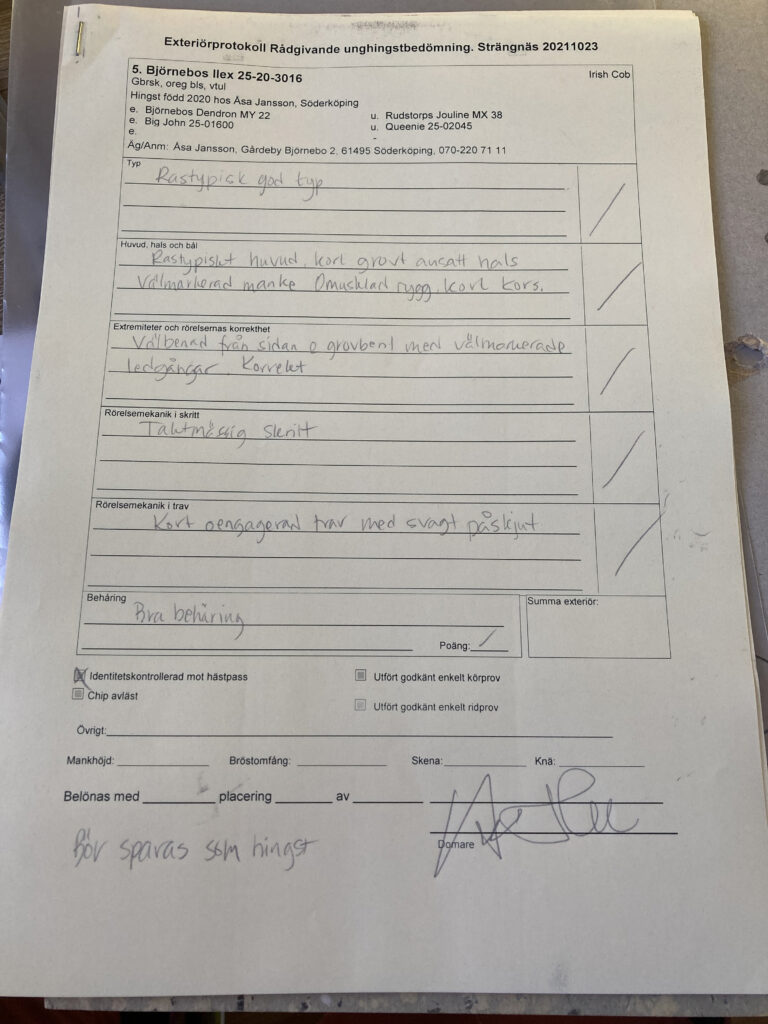 Exteriörprotokoll Rådgivande unghingstbedömning. Strängnäs 20211023
5. Björnebos Ilex 25-20-3016 Irish Cob
Gbrsk, oreg bls, vtul
Hingst född 2020 hos Åsa Jansson, Söderköping
e. Björnebos Dendron MY 22 u. Rudstorps Jouline MX 38
e. Big John 25-01600 u. Queenie 25-02045
e. -
Äg/Anm: Åsa Jansson, Gårdeby Björnebo 2, 61495 Söderköping, 070-220 71 11
Typ
Rastypisk god typ
Huvud, hals och bål
Rastypiskt huvud, kort grovt ansatt hals
Välmarkerad manke Omusklad rygg, kort kors.
Extremiteter och rörelsernas korrekthet
Välbenad från sidan o grovbent med välmarkerade
ledgångar. Korrekt
Rörelsemekanik i skritt
Taktmässig skritt
Rörelsemekanik i trav
Kort oengagerad trav med svagt påskjut
Behåring
Bra behåring
Poäng: /
Summa exteriör:
Identitetskontrollerad mot hästpass Utfört godkänt enkelt körprov
Chip avläst Utfört godkänt enkelt ridprov
Övrigt:
Mankhöjd: Bröstomfång: Skena: Knä:
Belönas med placering av
Domare
Bör sparas som hingst